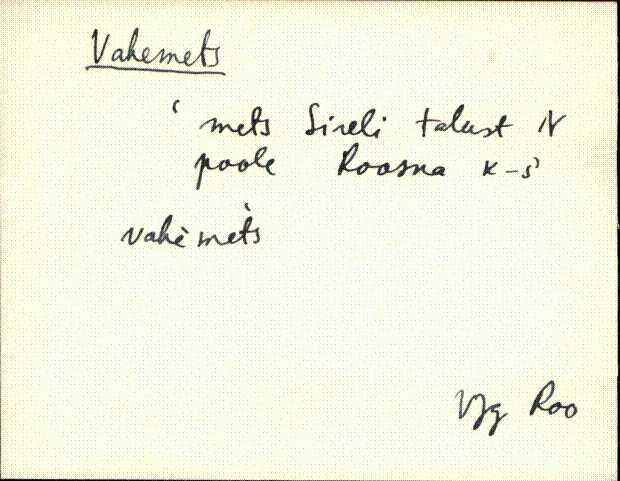 Vahemets
‘ mets Sireli talust N
poole Roosna k-s’
vahè mèts
Vjg Roo